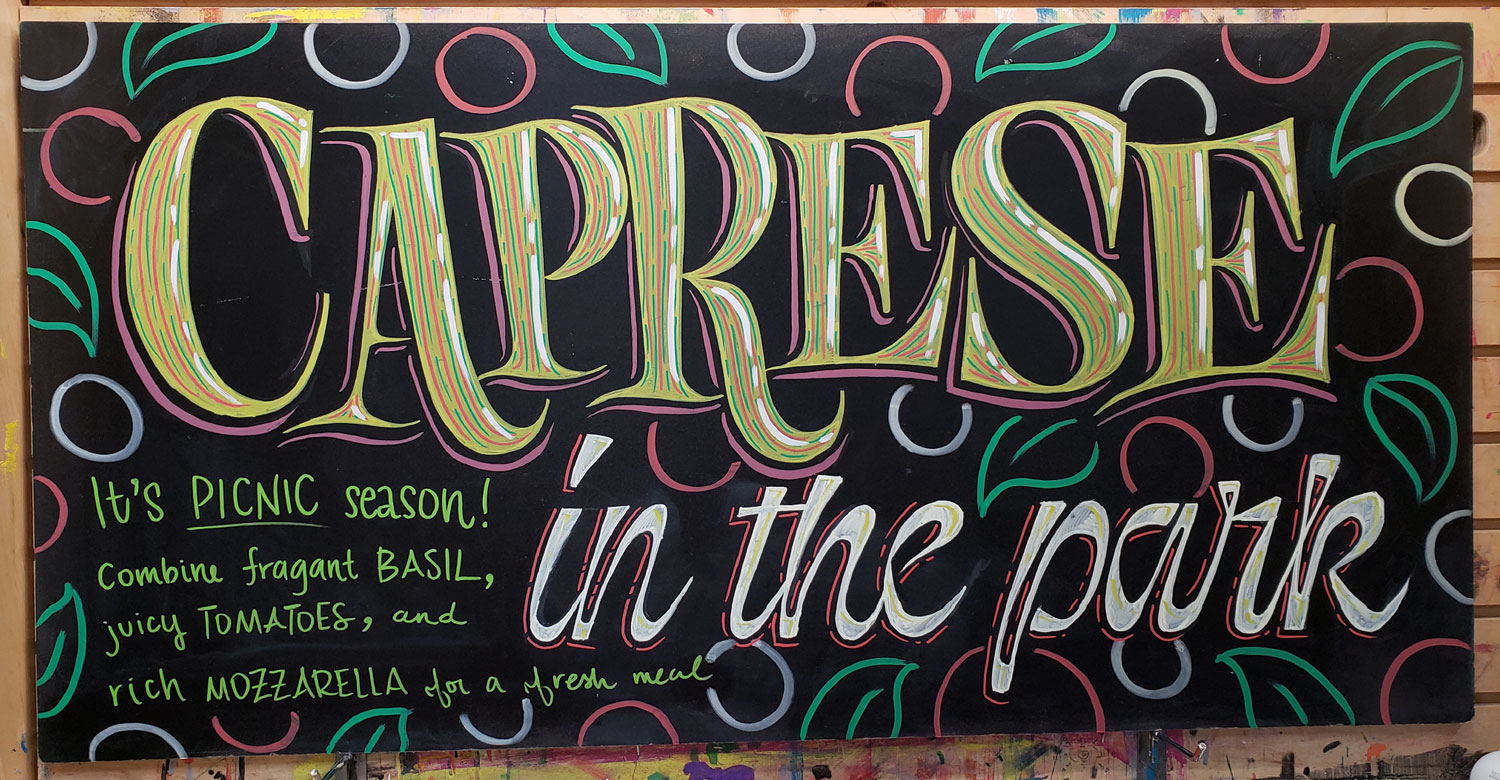 CAPRESE
in the park
It's PICNIC season!
combine fragant BASIL,
juicy TOMATOES, and
rich MOZZARELLA for a fresh meal